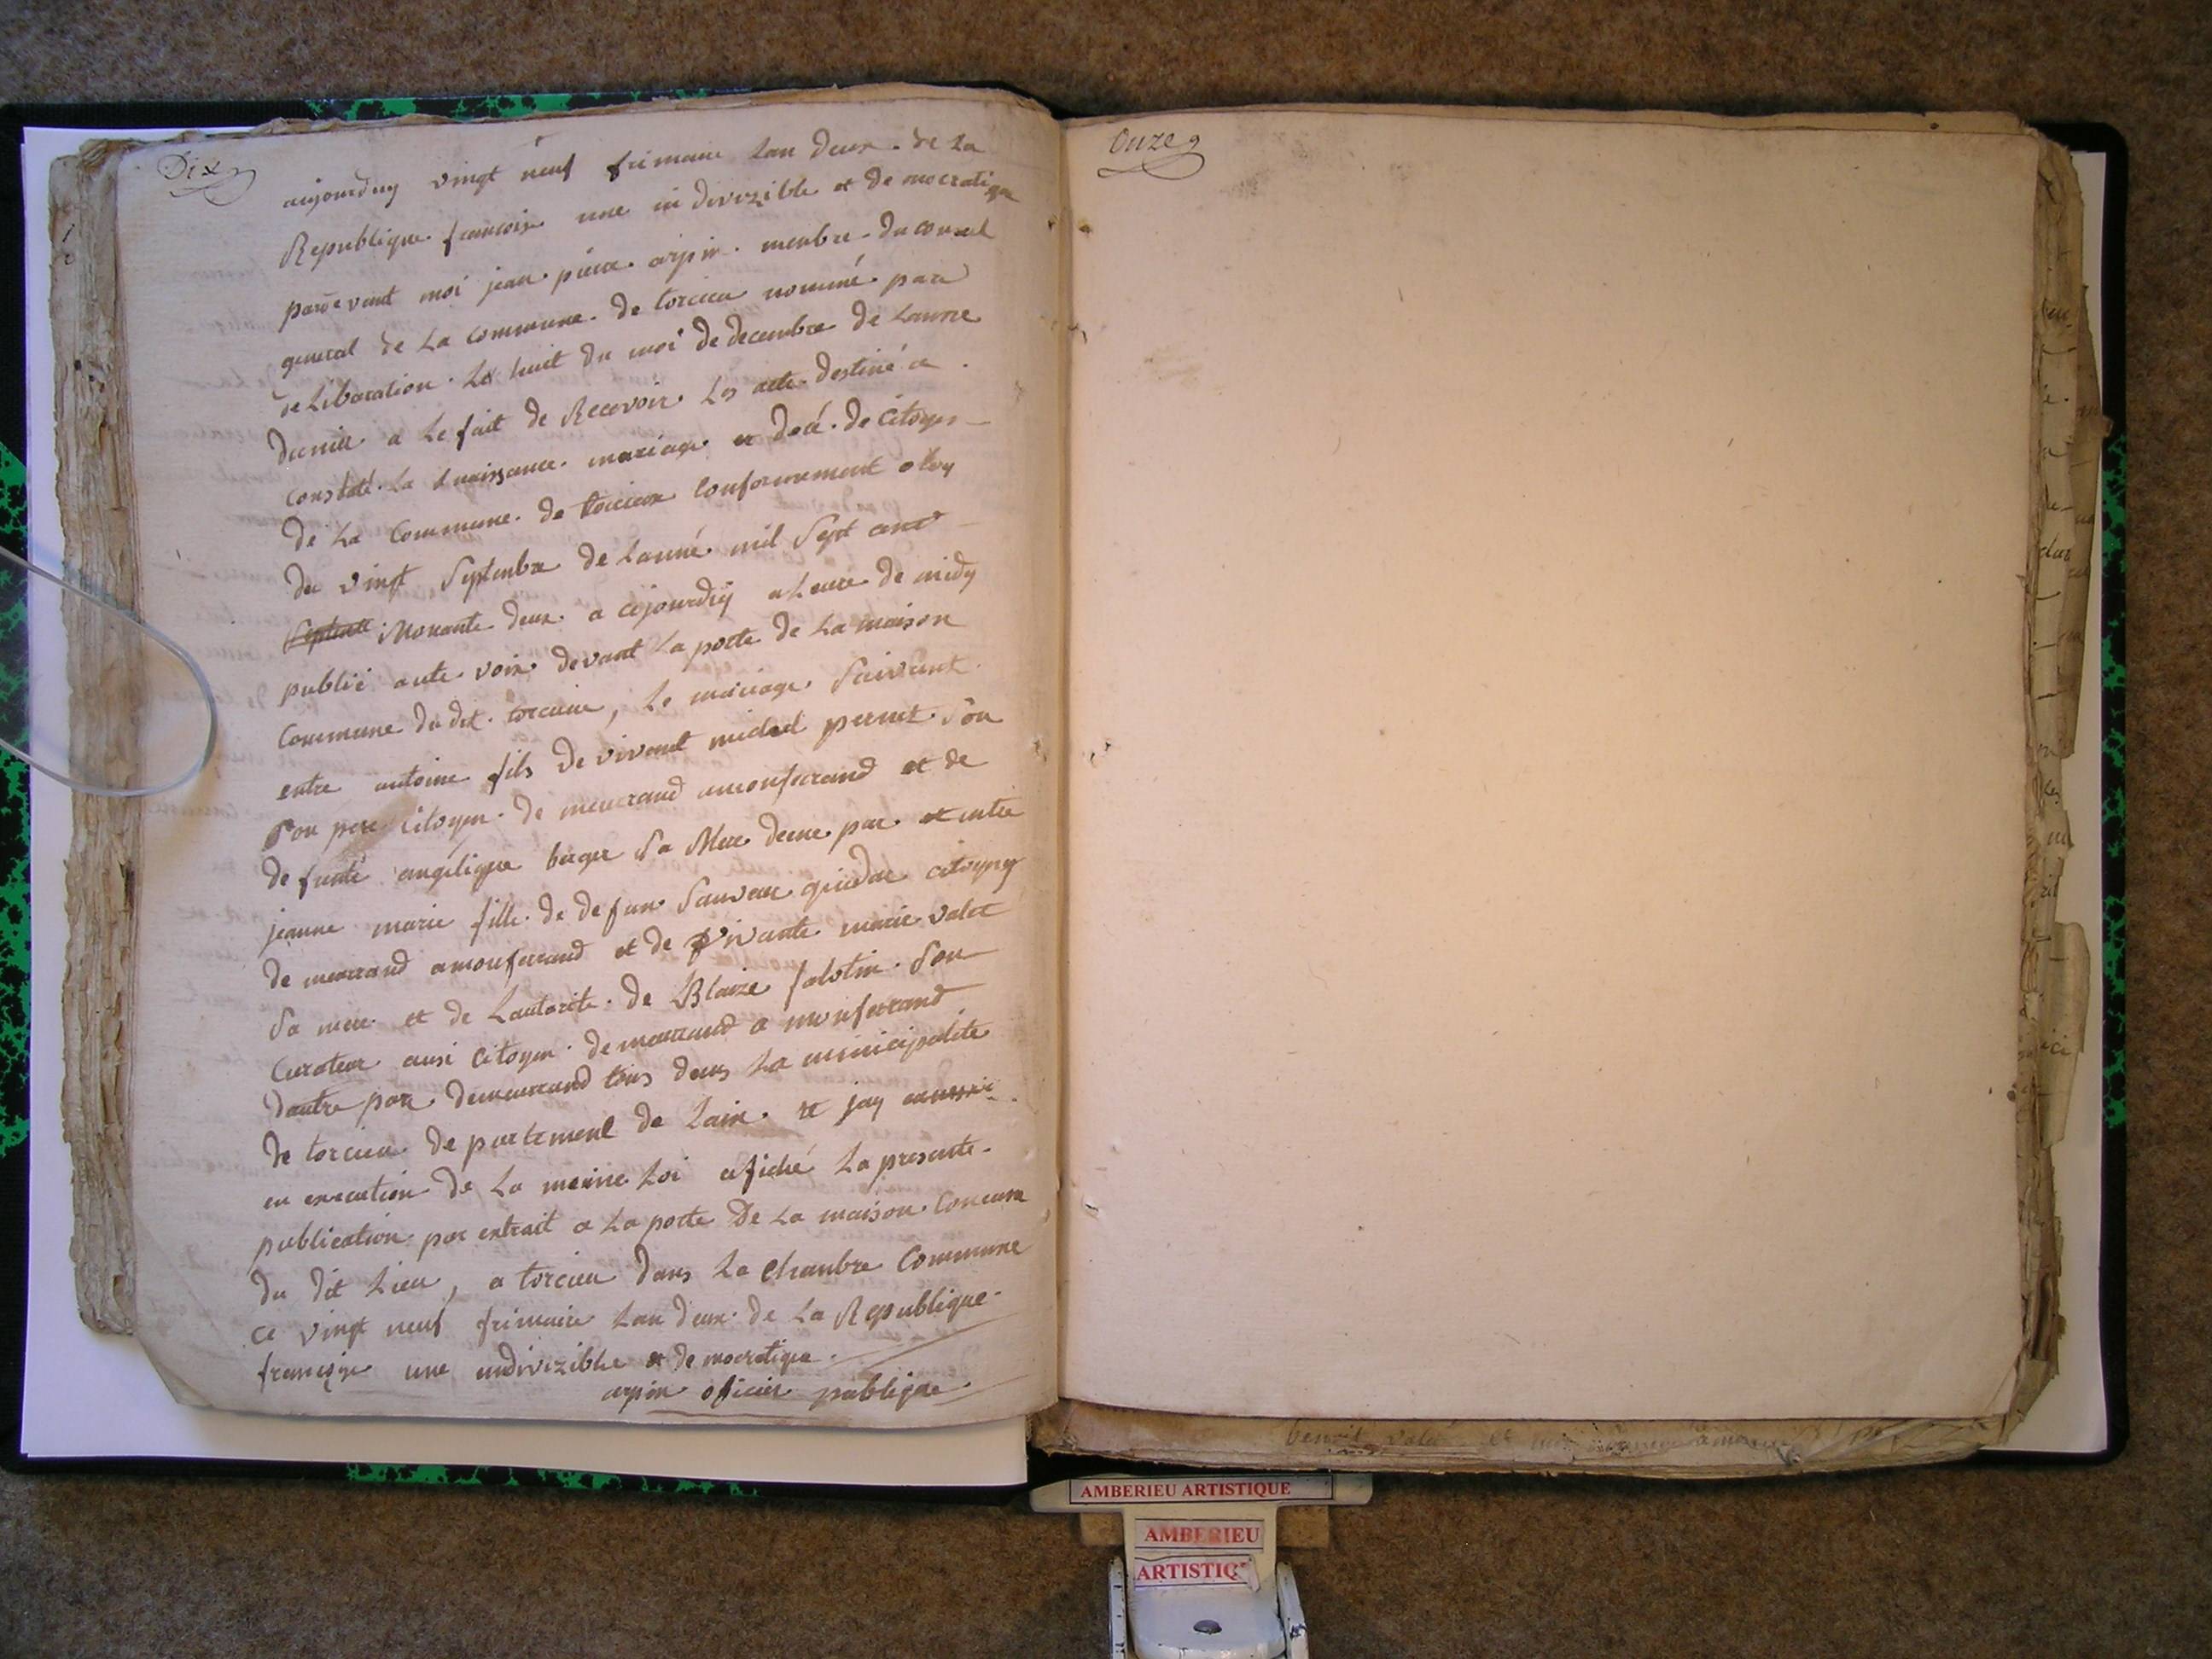 Dix
aujourduy vingt neuf frimaire Lan deux de La
Republique francoise une indivizible et democratique
pardevant moi jean piere arpin membre du conseil
general de La commune de torcieu nommé par
deLiberation Le huit du moi de decembre de Lanne
derniee a Le fait de Recevoir Les acte destiné a
constaté La naissance mariage et décé de Citoyen
de La Commune de torcieu conformement a loy
du vingt Septembre de Lanné mil Sept cent
Nonante deux a cejourduy a Leure de midy
publié aute voix devant La porte de La maison
Commune du dit torcieu, Le mariage Suivant
entre antoine fils de vivant michel pernet Son
Son pere Citoyen de meurrand amonferrand et de
defunte angélique berger Sa Mere deune par et entre
jeanne marie fille de defun Sauveur citoyen
de meurrand amonferrand et de vivante marie valet
Sa mere et de Lautorite de Blaize falotin Son
Curateur ausi Citoyen demeurrand a monferrand
dautre par demeurrand tous deux La municipalite
de torcieu departement de Lain et jay
en execution de La meme Loi afiché La presente
publication par extrait a La porte De La maison Commune
du dit Lieu, a torcieu dans La Chambre Commune
ce vingt neuf frimaire Lan deux de La Republique
francoise une indivizible et democratique
arpin oficier publique
Onze
benoit valet et
AMBERIEU ARTISTIQUE
AMBERIEU
ARTISTIQ